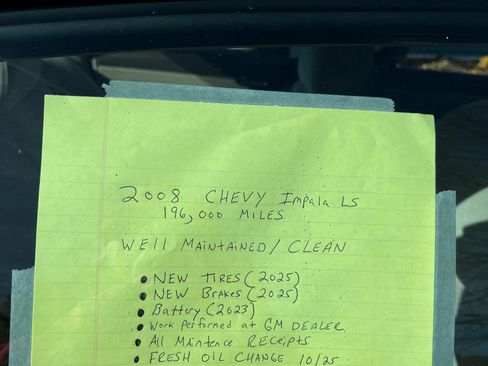 2008 CHEVY Impala LS
196,000 MILES
WELL MAINTAINED / CLEAN
• NEW TIRES (2025)
• NEW BRAKES (2025)
• BATTERY (2023)
• WORK PERFORMED AT GM DEALER
• All MAINTENCE RECEIPTS
• FRESH OIL CHANGE 10/25